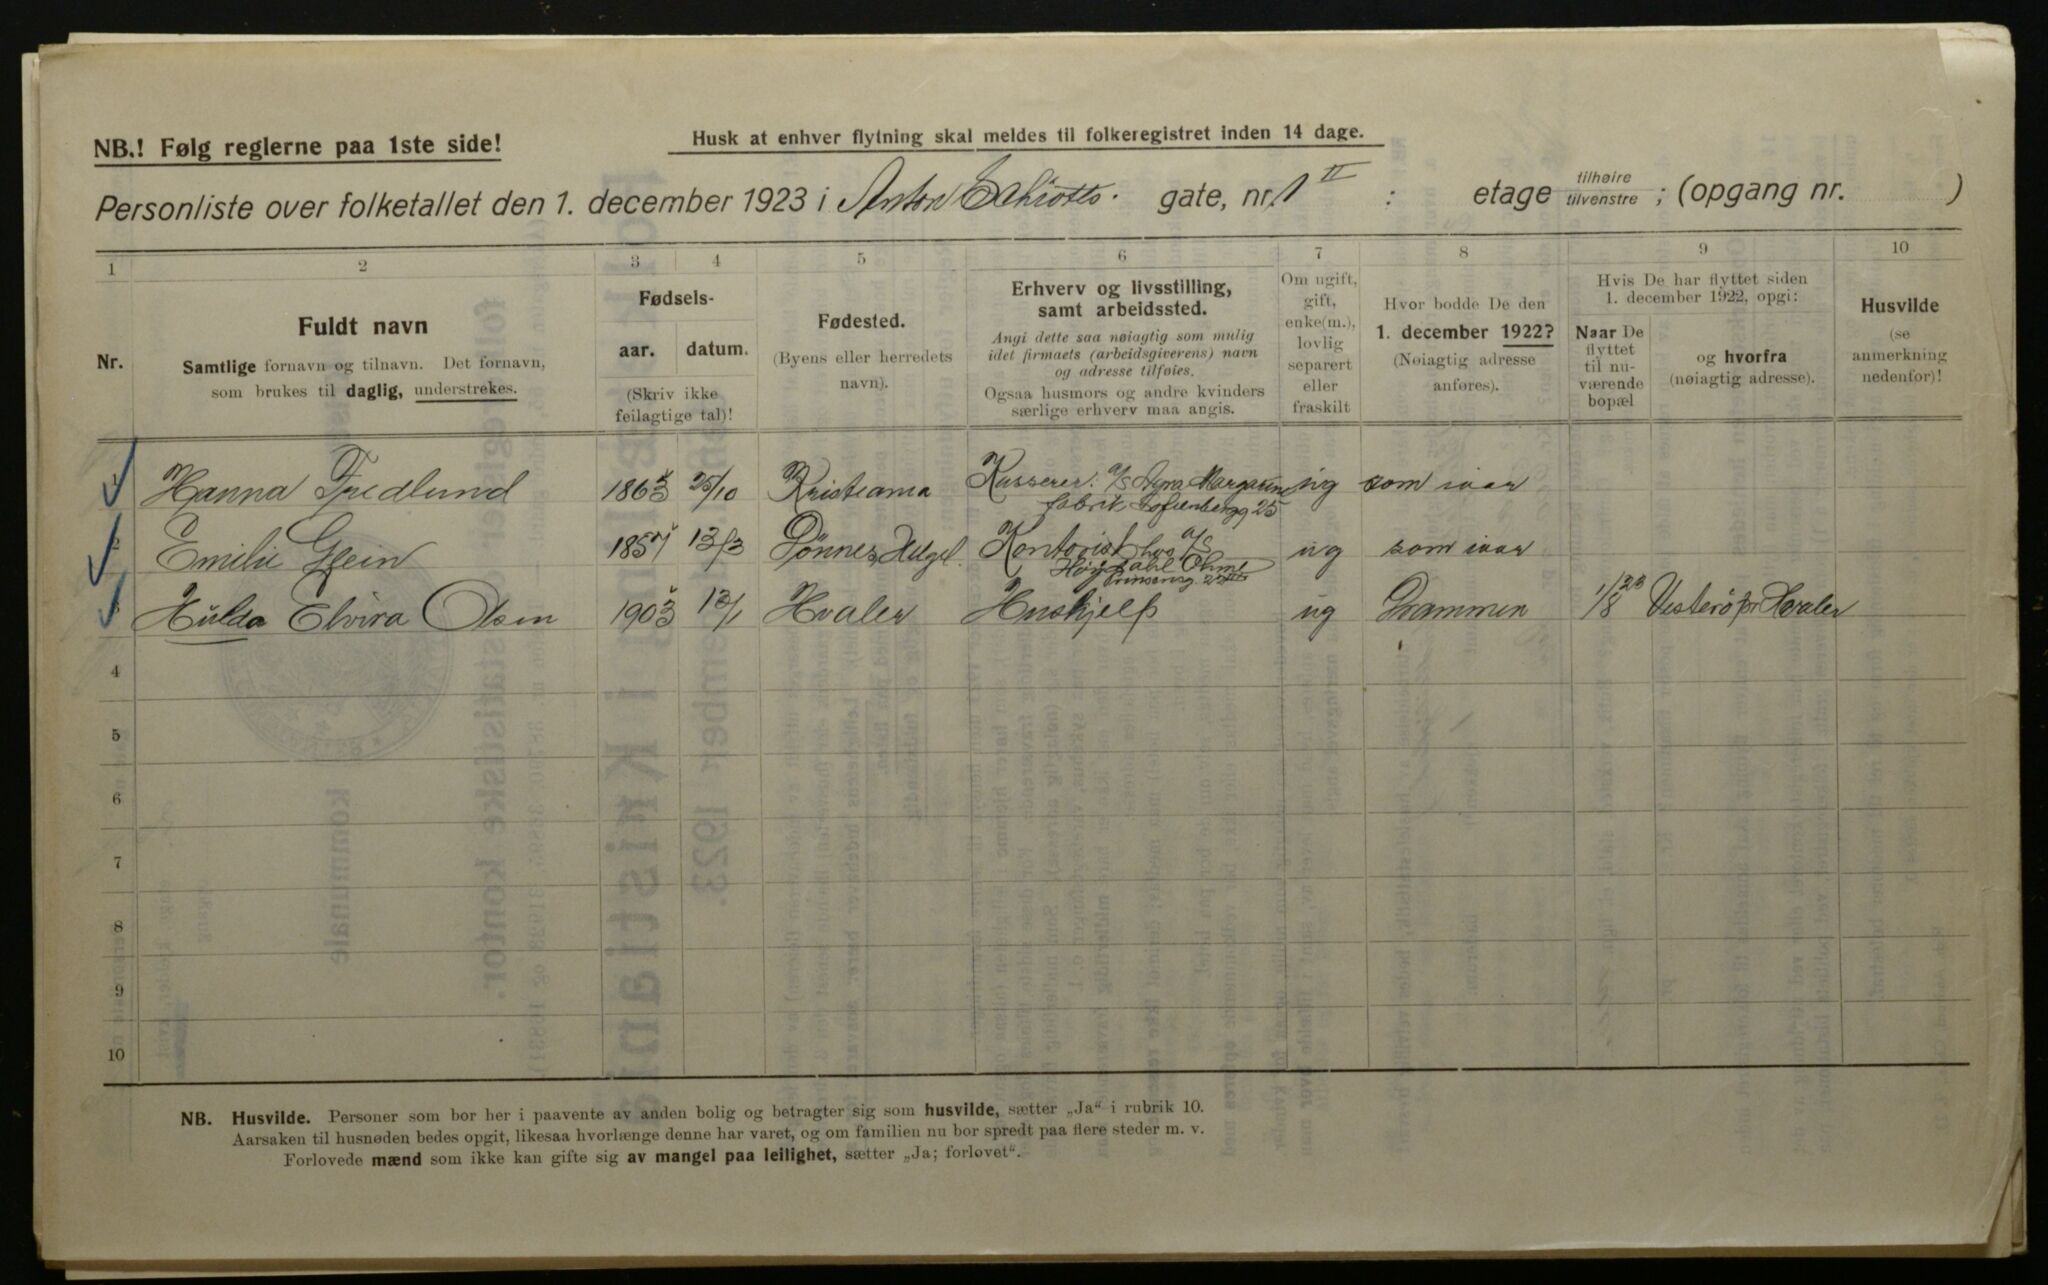 NB.! Følg reglerne paa 1ste side!
Husk at enhver flytning skal meldes til folkeregistret inden 14 dage.
Personliste over folketallet den 1. december 1923 i Anton Schiøtts gate, nr. 1 II : etage tilhøire tilvenstre ; (opgang nr. )
1 2 3 4 5 6 7 8 9 10
Nr.
Fuldt navn
Samtlige fornavn og tilnavn. Det fornavn,
som brukes til daglig, understrekes.
Fødsels-
aar. datum.
(Skriv ikke
feilagtige tal)!
Fødested.
(Byens eller herredets
navn).
Erhverv og livsstilling,
samt arbeidssted.
Angi dette saa nøiagtig som mulig
idet firmaets (arbeidsgiverens) navn
og adresse tilføies.
Ogsaa husmors og andre kvinders
særlige erhverv maa angis.
Om ugift,
gift,
enke(m.),
lovlig
separert
eller
fraskilt
Hvor bodde De den
1. december 1922?
(Nøiagtig adresse
anføres).
Hvis De har flyttet siden
1. december 1922, opgi:
Naar De
flyttet
til nu-
værende
bopæl
og hvorfra
(nøiagtig adresse).
Husvilde
(se
anmerkning
nedenfor)!
1 Hanna Fredlund 1863 25/10 Kristiania Kasserer. a/s Agra Margarine ug som ivar
fabrik Sofienbergg 25
2 Emilie Glein 1857 13/3 Dønnes Helgel. Kontorist hos a/s ug som ivar
Prinsensg.
3 Hulda Elvira Olsen 1903 12/1 Hvaler Huskjelp ug Drammen 1/8 23 Vesterø pr Hvaler
4
5
6
7
8
9
10
NB. Husvilde. Personer som bor her i paavente av anden bolig og betragter sig som husvilde, sætter „Ja“ i rubrik 10.
Aarsaken til husnøden bedes opgit, likesaa hvorlænge denne har varet, og om familien nu bor spredt paa flere steder m. v.
Forlovede mænd som ikke kan gifte sig av mangel paa leilighet, sætter „Ja; forlovet“.